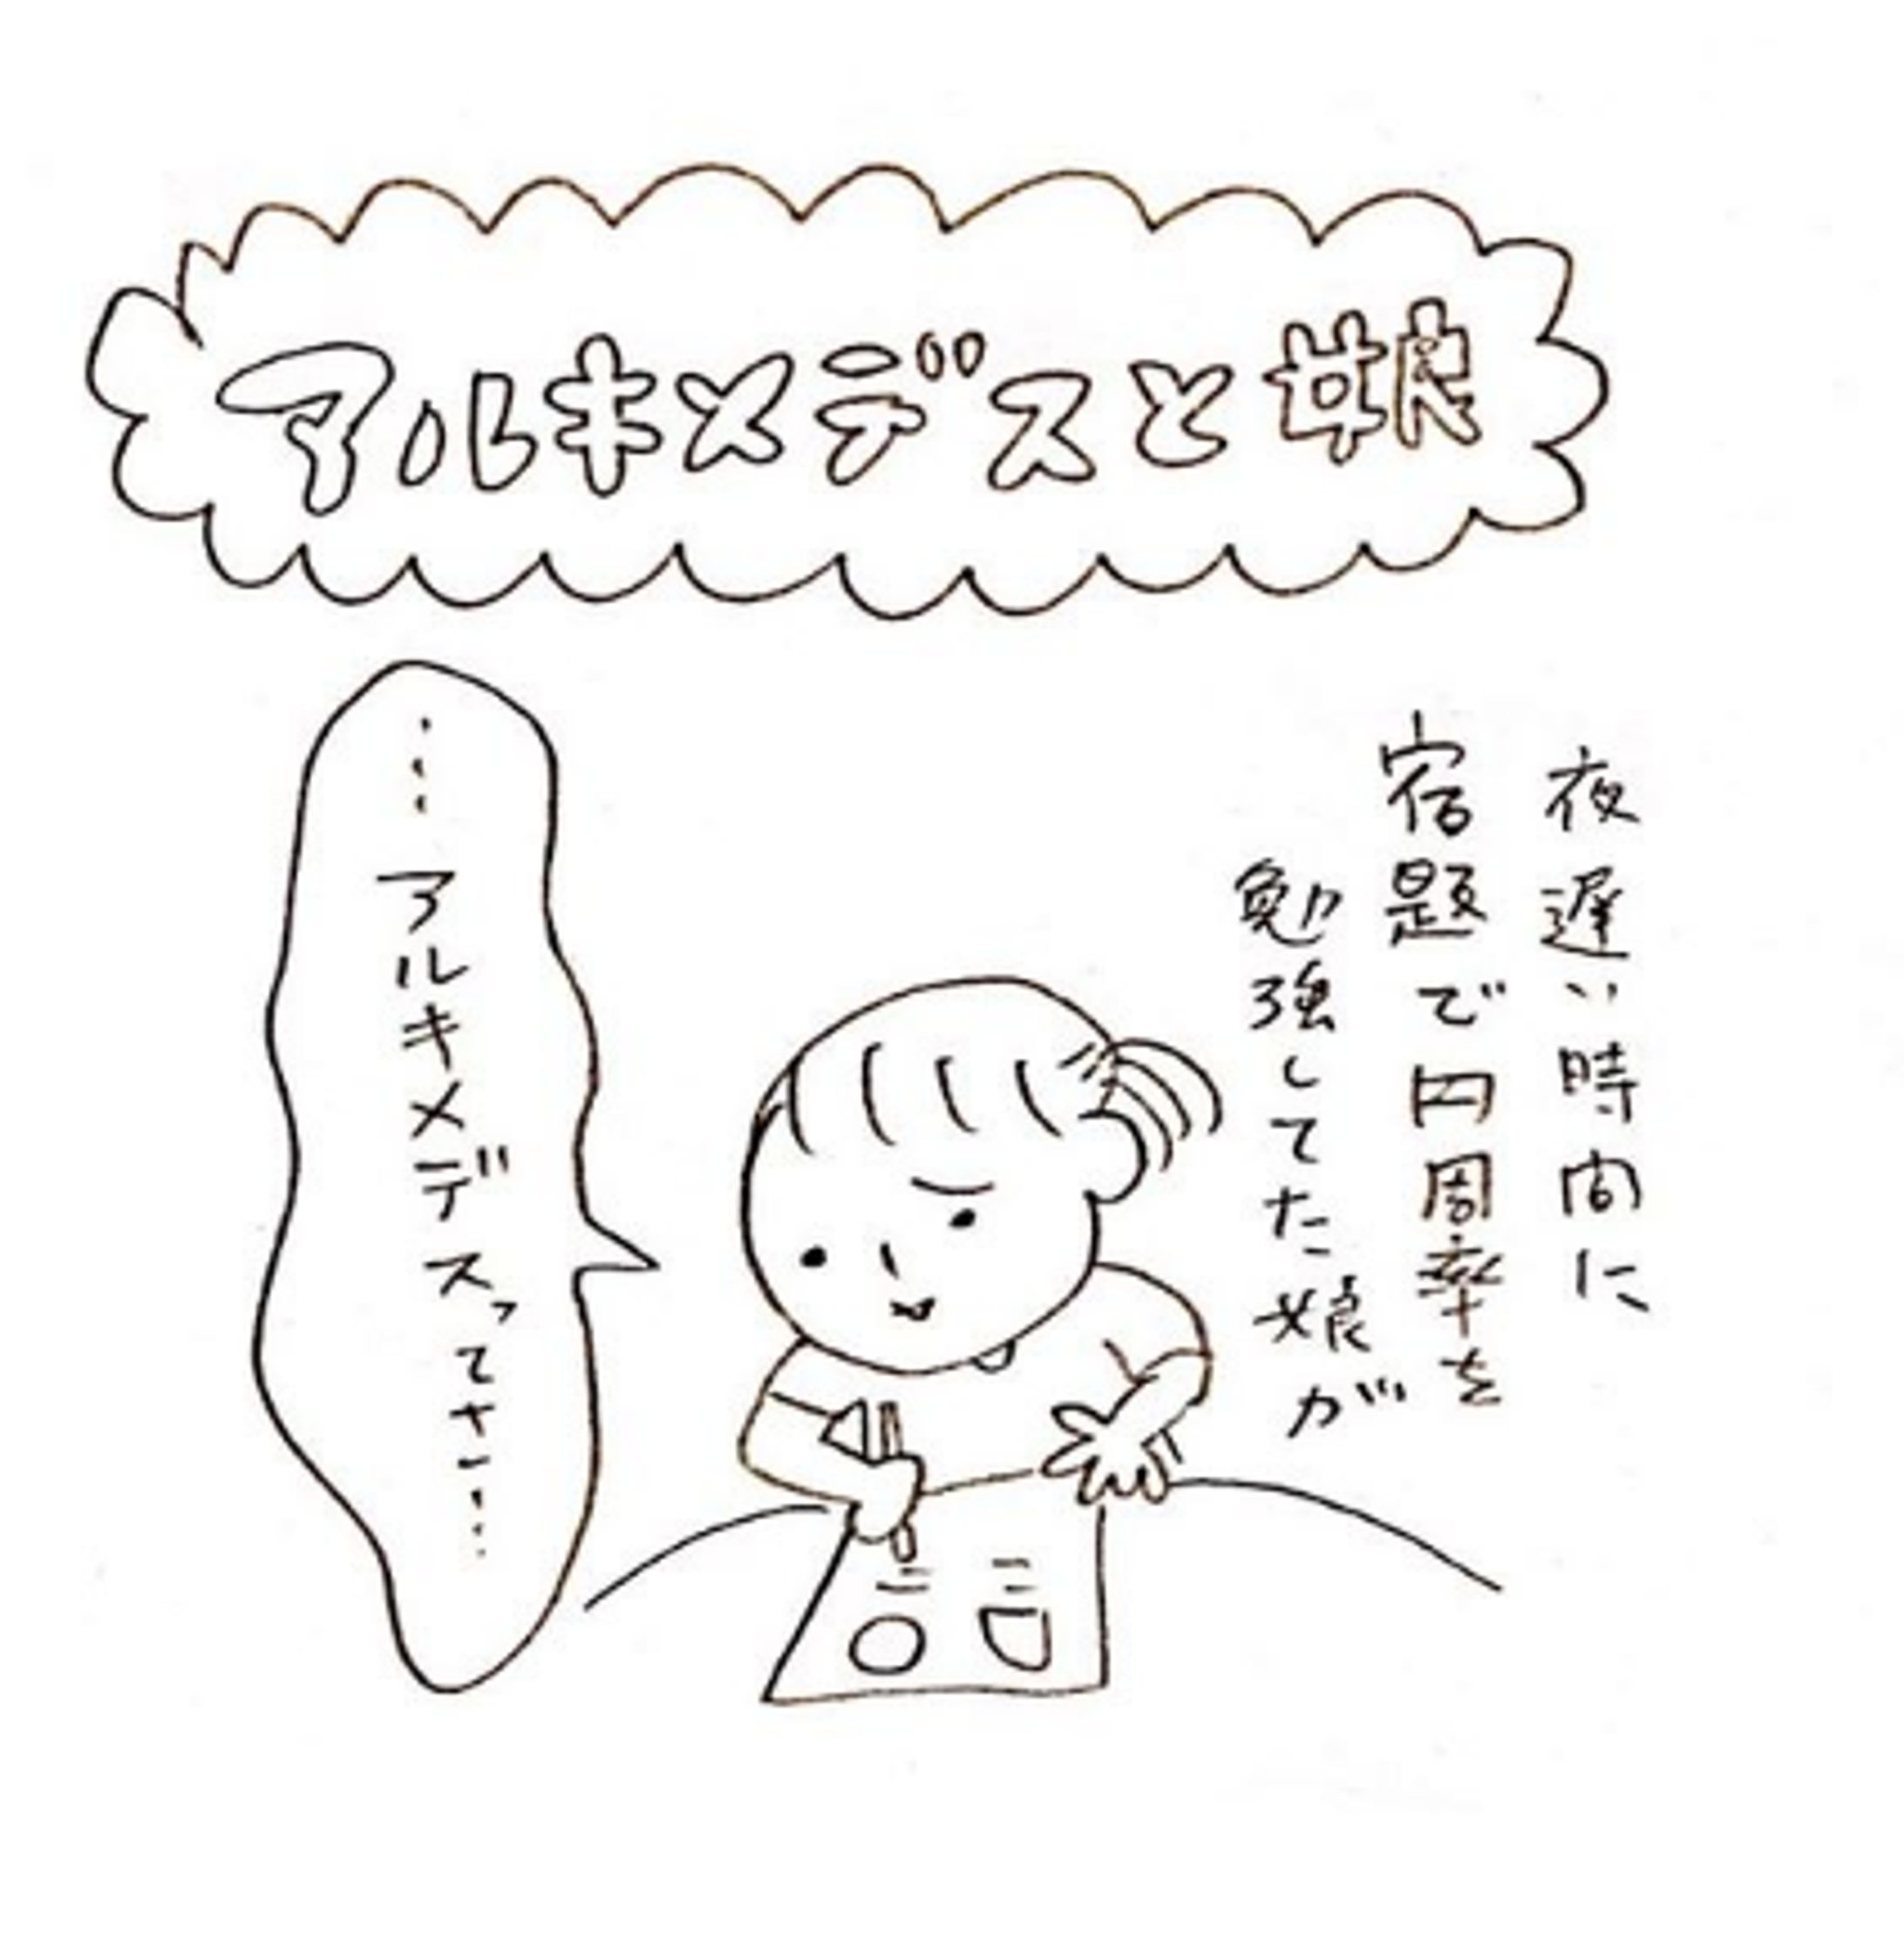 アルキメデスと娘
夜遅い時間に
宿題で円周率を
勉強してた娘が
…アルキメデスってさー…